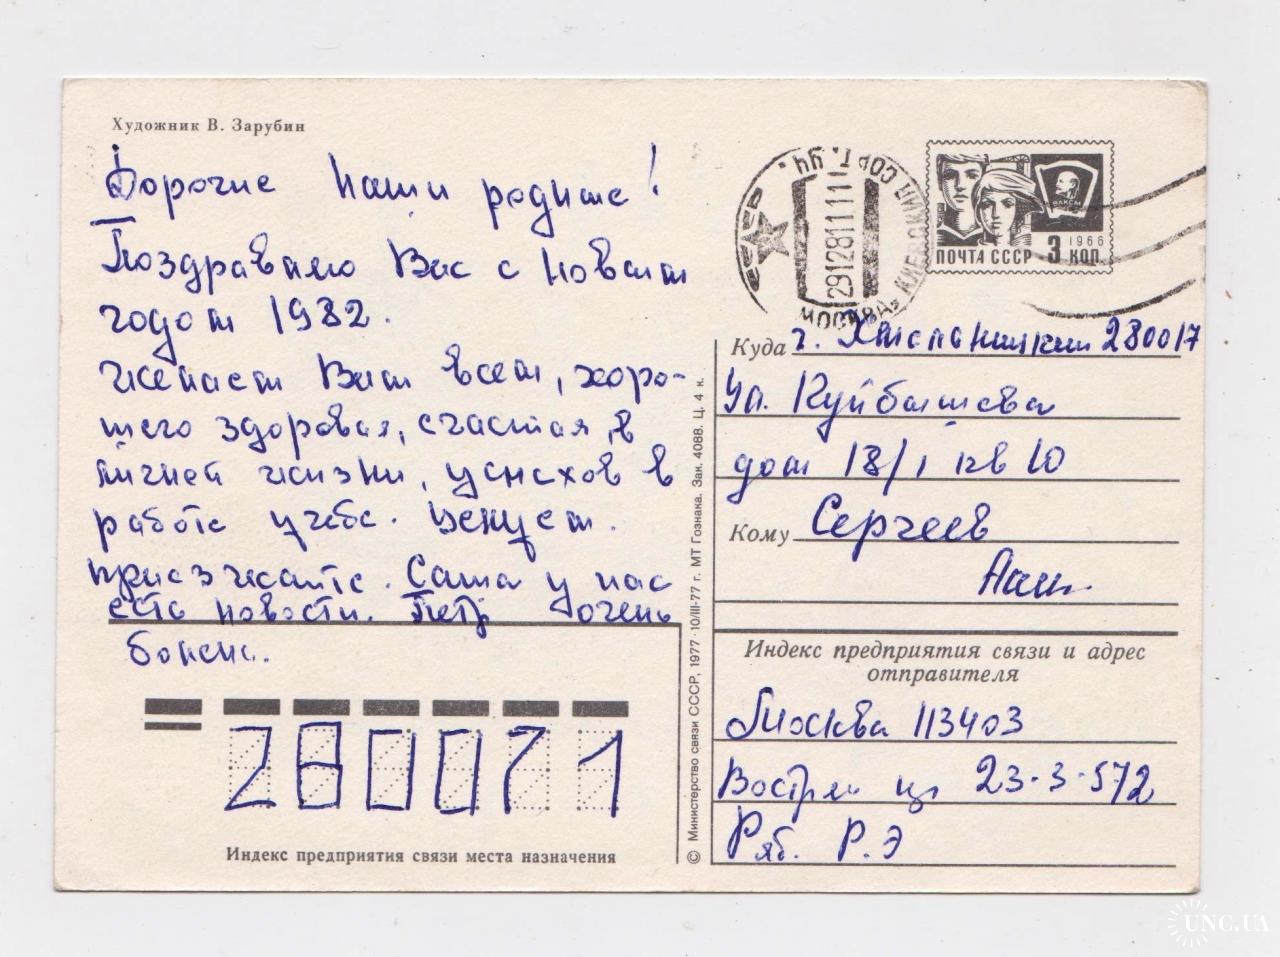 Художник В. Зарубин
Дорогие наши родные!
Поздравляю Вас с новым
годом 1982.
Желаем Вам всем, хоро-
шего здоровья, счастья, в
личной жизни, успехов в
работе учебе. Целуем.
приезжайте. Саша у нас
есть новости. Петр очень
болен.
280071
Индекс предприятия связи места назначения
© Министерство связи СССР, 1977 · 10/III-77 г. МТ Гознака. Зак. 4088. Ц. 4 к.
СССР
МОСКВА, КИЕВСКИЙ СОРТ.
29128111
ВЛКСМ
1966
ПОЧТА СССР 3 КОП.
Куда г. Хмельницкий 280017
Ул. Куйбышева
дом 18/1 кв 10
Кому Сергеев
Индекс предприятия связи и адрес
отправителя
Москва 113403
23-3-572
Ряб. Р.Э
UNC.UA